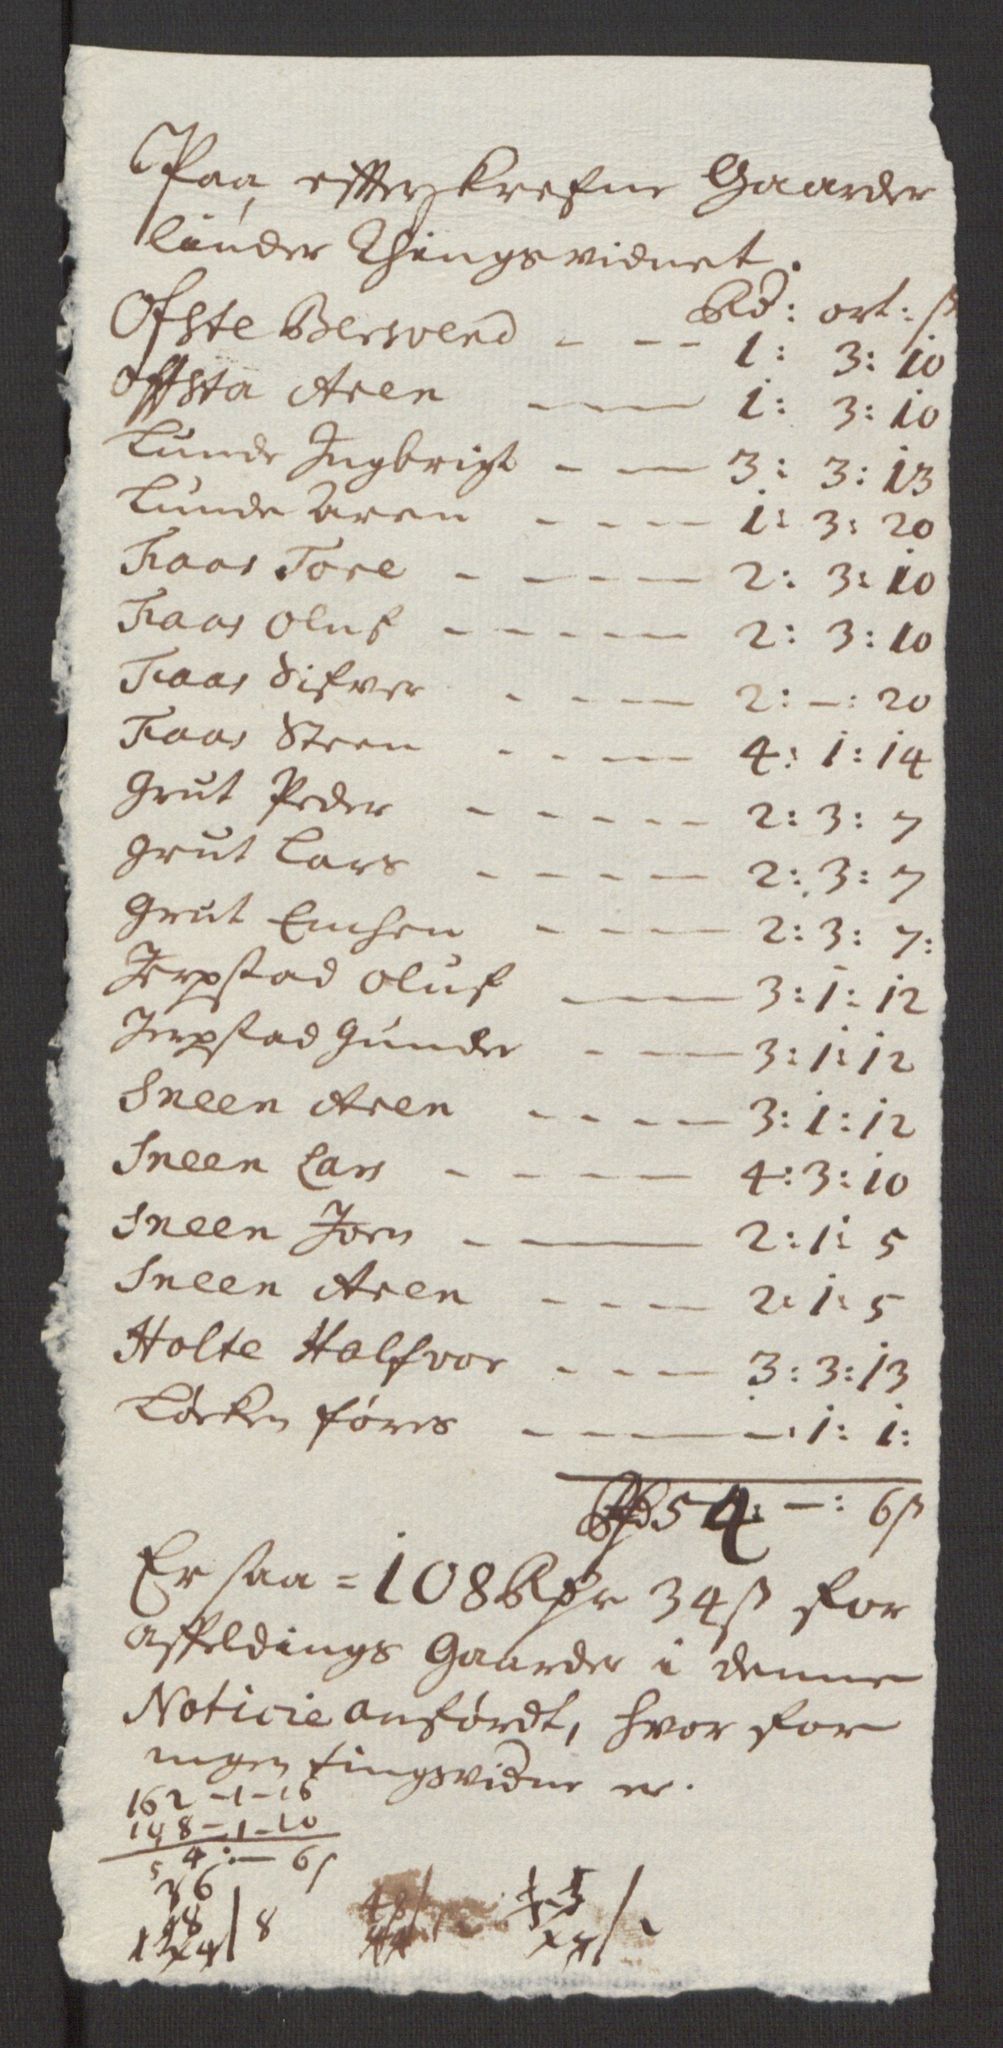 Paa effterskrefne Gaarder
linder Thingsvidnet.
Rd: ort: ß
Ofste Bersvend - - - 1: 3: 10
Offsta Aren - - - 1: 3: 10
Lunde Ingbrigt - - 3: 3: 13
Lunde Aren - - - - 1: 3: 20
Fraas Tore - - - - 2: 3: 10
Fraas Oluf - - - - - 2: 3: 10
Fraas Sifver - - - - 2: -: 20
Fraas Steen - - - - 4: 1: 14
Grut Peder - - - - - 2: 3: 7
Grut Lars - - - - - 2: 3: 7
Grut Emhen - - - - 2: 3: 7:
Jerpstad Oluf - - - 3: 1: 12
Jerpstad Gunder - - 3: 1: 12
Sneen Aren - - - - 3: 1: 12
Sneen Lars - - - - - 4: 3: 10
Sneen Jorn - - 2: 1: 5
Sneen Aren - - - - 2: 1: 5
Holte Halfvor - - - 3: 3: 13
Løcken føris - - - - : 1: 1:
Rd 54: -: 6ß
Er saa = 108 Rdr 34ß for
affeldings Gaarder i denne
Noticie anførdt, hvor for
ingen tingsvidne er.
162 - 1 - 16
148 - 1 - 10
5 4: - 6ß
36
48 / 8